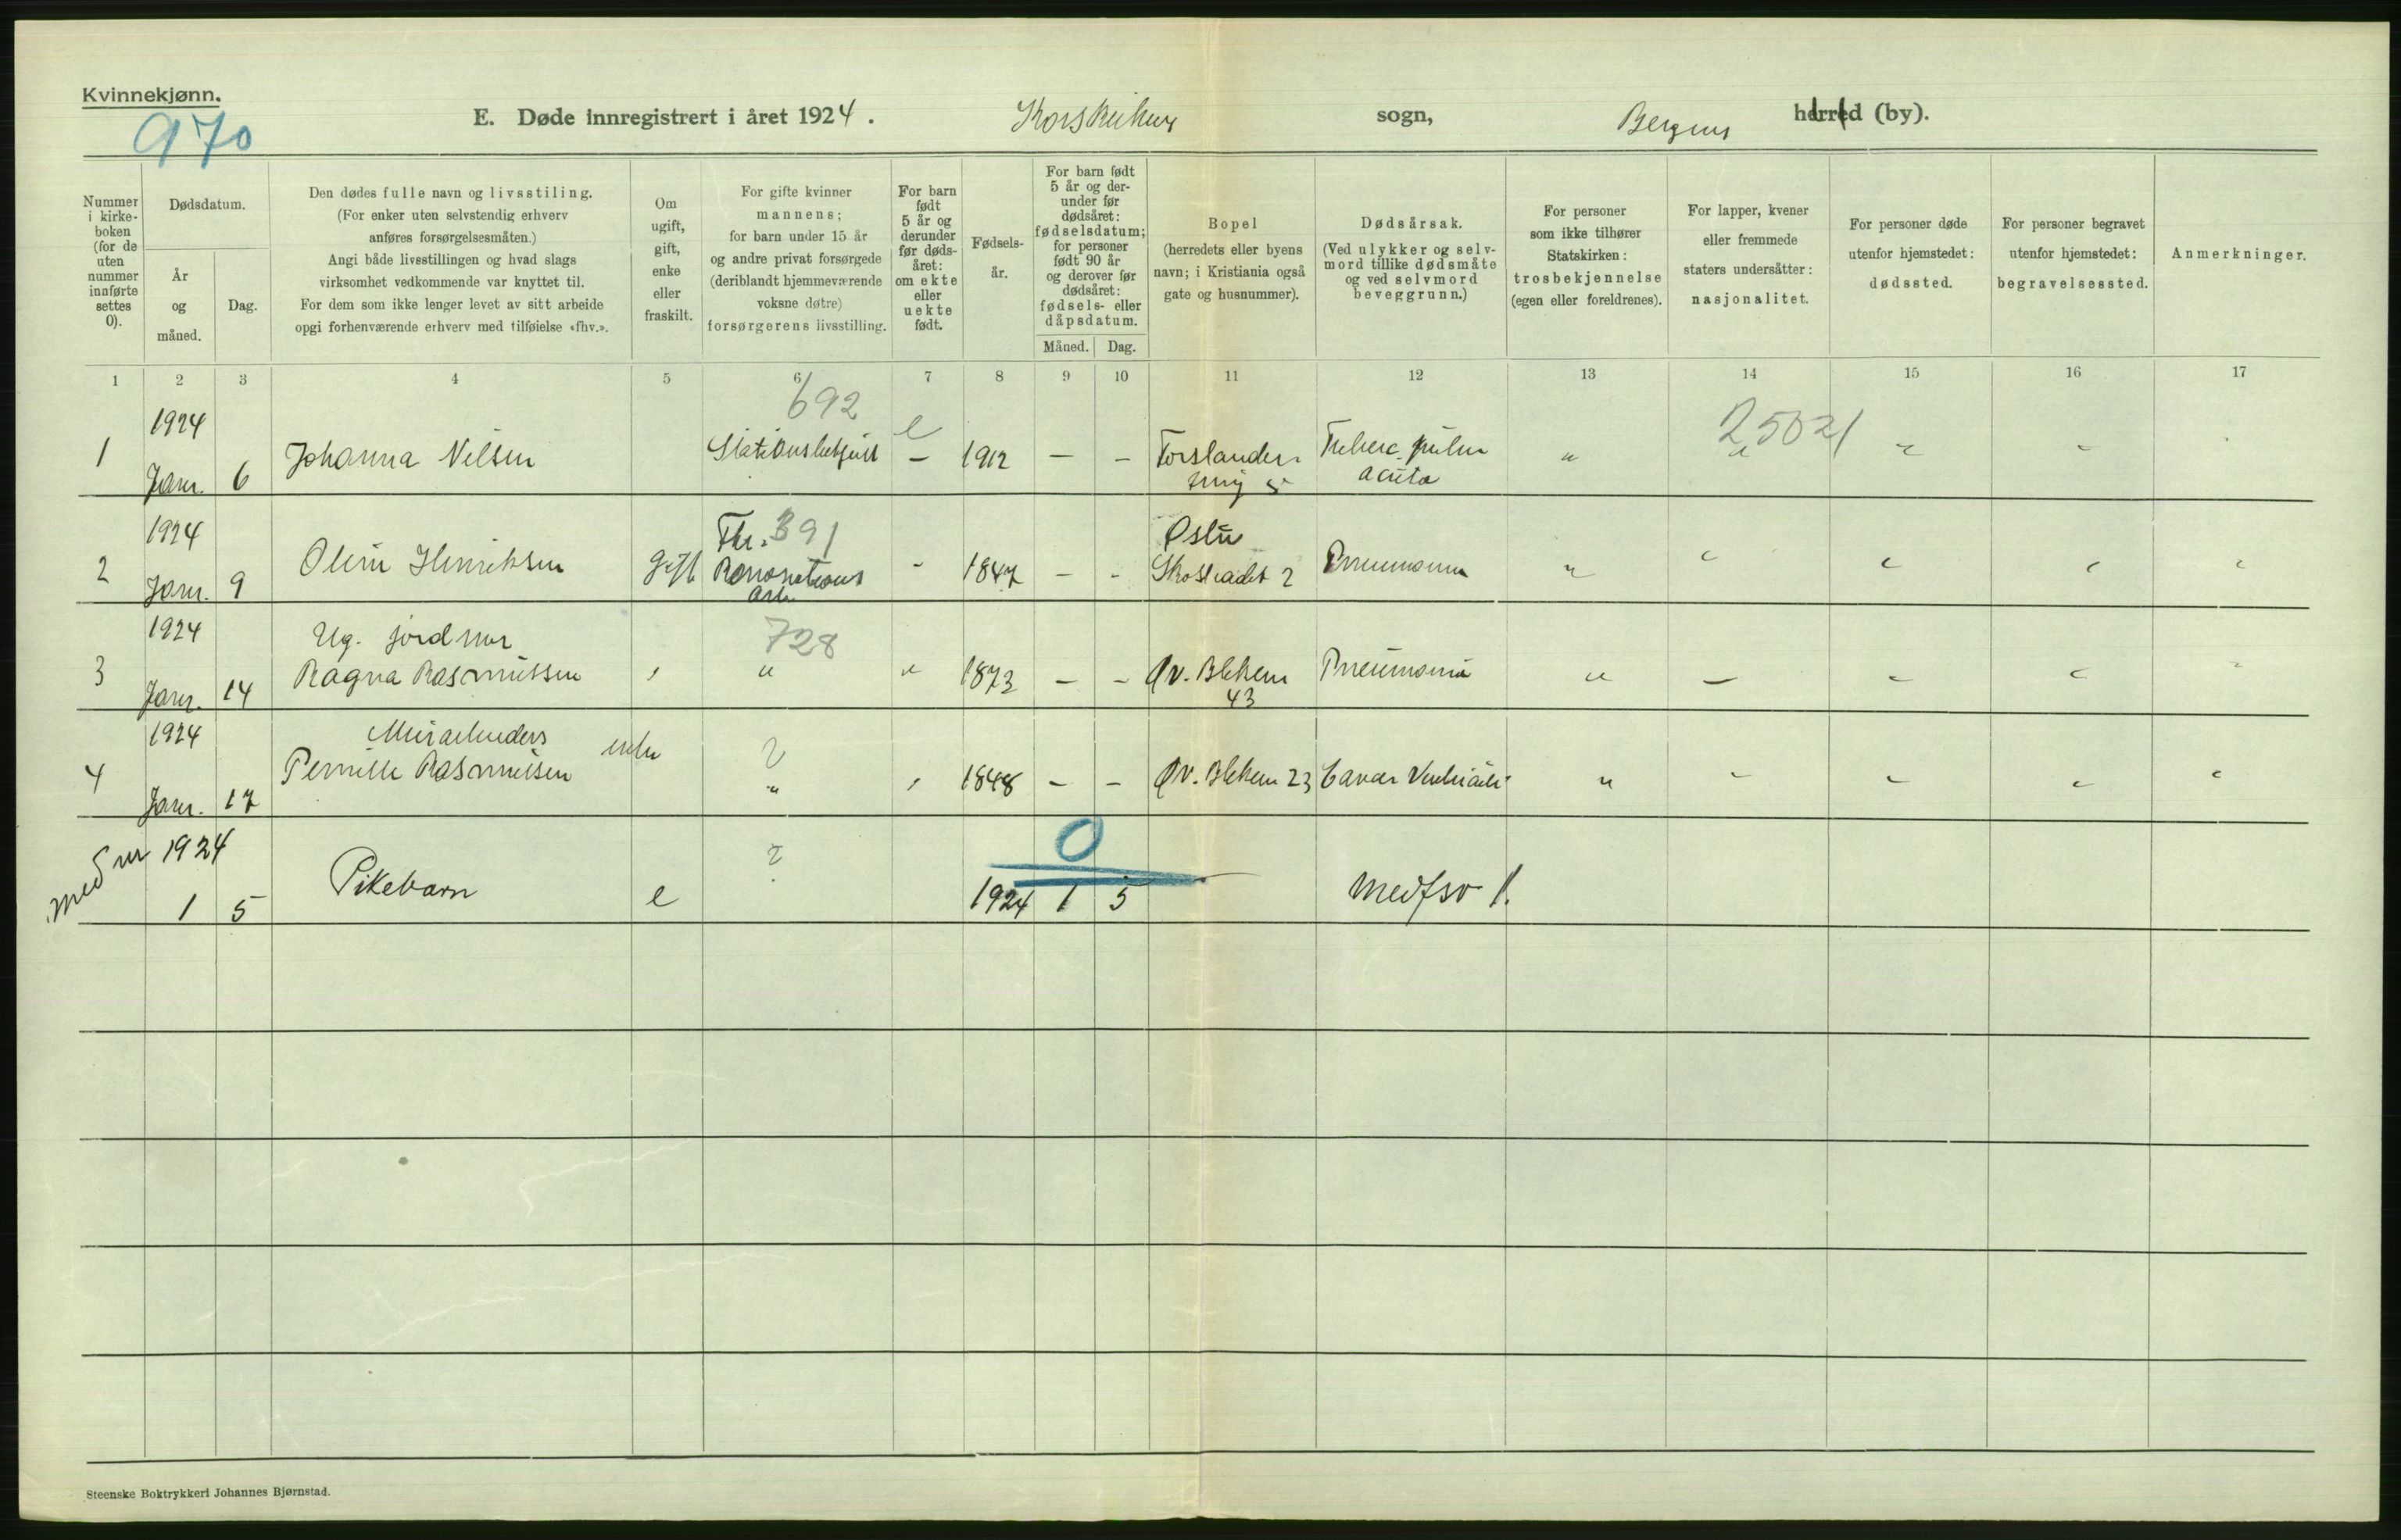 Kvinnekjønn.
970
E. Døde innregistrert i året 1924. Korskirkens sogn, Bergens herred (by).
Nummer i kirke-boken (for de uten nummer innførte settes 0).
Dødsdatum.
År og måned.
Dag.
Den dødes fulle navn og livsstiling.
(For enker uten selvstendig erhverv
anføres forsørgelsesmåten.)
Angi både livsstillingen og hvad slags
virksomhet vedkommende var knyttet til.
For dem som ikke lenger levet av sitt arbeide
opgi forhenværende erhverv med tilføielse «fhv.».
Om ugift, gift, enke eller fraskilt.
For gifte kvinner
mannens;
for barn under 15 år
og andre privat forsørgede
(deriblandt hjemmeværende
voksne døtre)
forsørgerens livsstilling.
For barn født 5 år og derunder før døds-året: om ekte eller uekte født.
Fødsels-år.
For barn født 5 år og der-under før dødsåret: fødselsdatum; for personer født 90 år og derover før dødsåret: fødsels- eller dåpsdatum.
Måned. Dag.
Bopel
(herredets eller byens
navn; i Kristiania også
gate og husnummer).
Dødsårsak.
(Ved ulykker og selv-
mord tillike dødsmåte
og ved selvmord
beveggrunn.)
For personer
som ikke tilhører
Statskirken:
trosbekjennelse
(egen eller foreldrenes).
For lapper, kvener
eller fremmede
staters undersåtter:
nasjonalitet.
For personer døde
utenfor hjemstedet:
dødssted.
For personer begravet
utenfor hjemstedet:
begravelsessted.
Anmerkninger.
1 2 3 4 5 6 7 8 9 10 11 12 13 14 15 16 17
692
25021
1 1924 Janr. 6 Johanna Nilsen e – 1912 – – Tuberc. pulm acuta " "
391
2 1924 Janr. 9 Henriksen gift Renovations arb. - 1847 – - Oslo 2 Pneumonia "
728
3 1924 Janr. 14 Ug. Ragna Rasmussen " " 1873 – – Øv. Blekevn 43 Pneumonia " –
4 1924 Janr. 17 Murarbeiders enke Pernille Rasmussen " 1848 – – Øv. Blekevn 23 "
0
1924 1 5 Pikebarn e ? 1924 1 5 medfsv 1.
Steenske Boktrykkeri Johannes Bjørnstad.